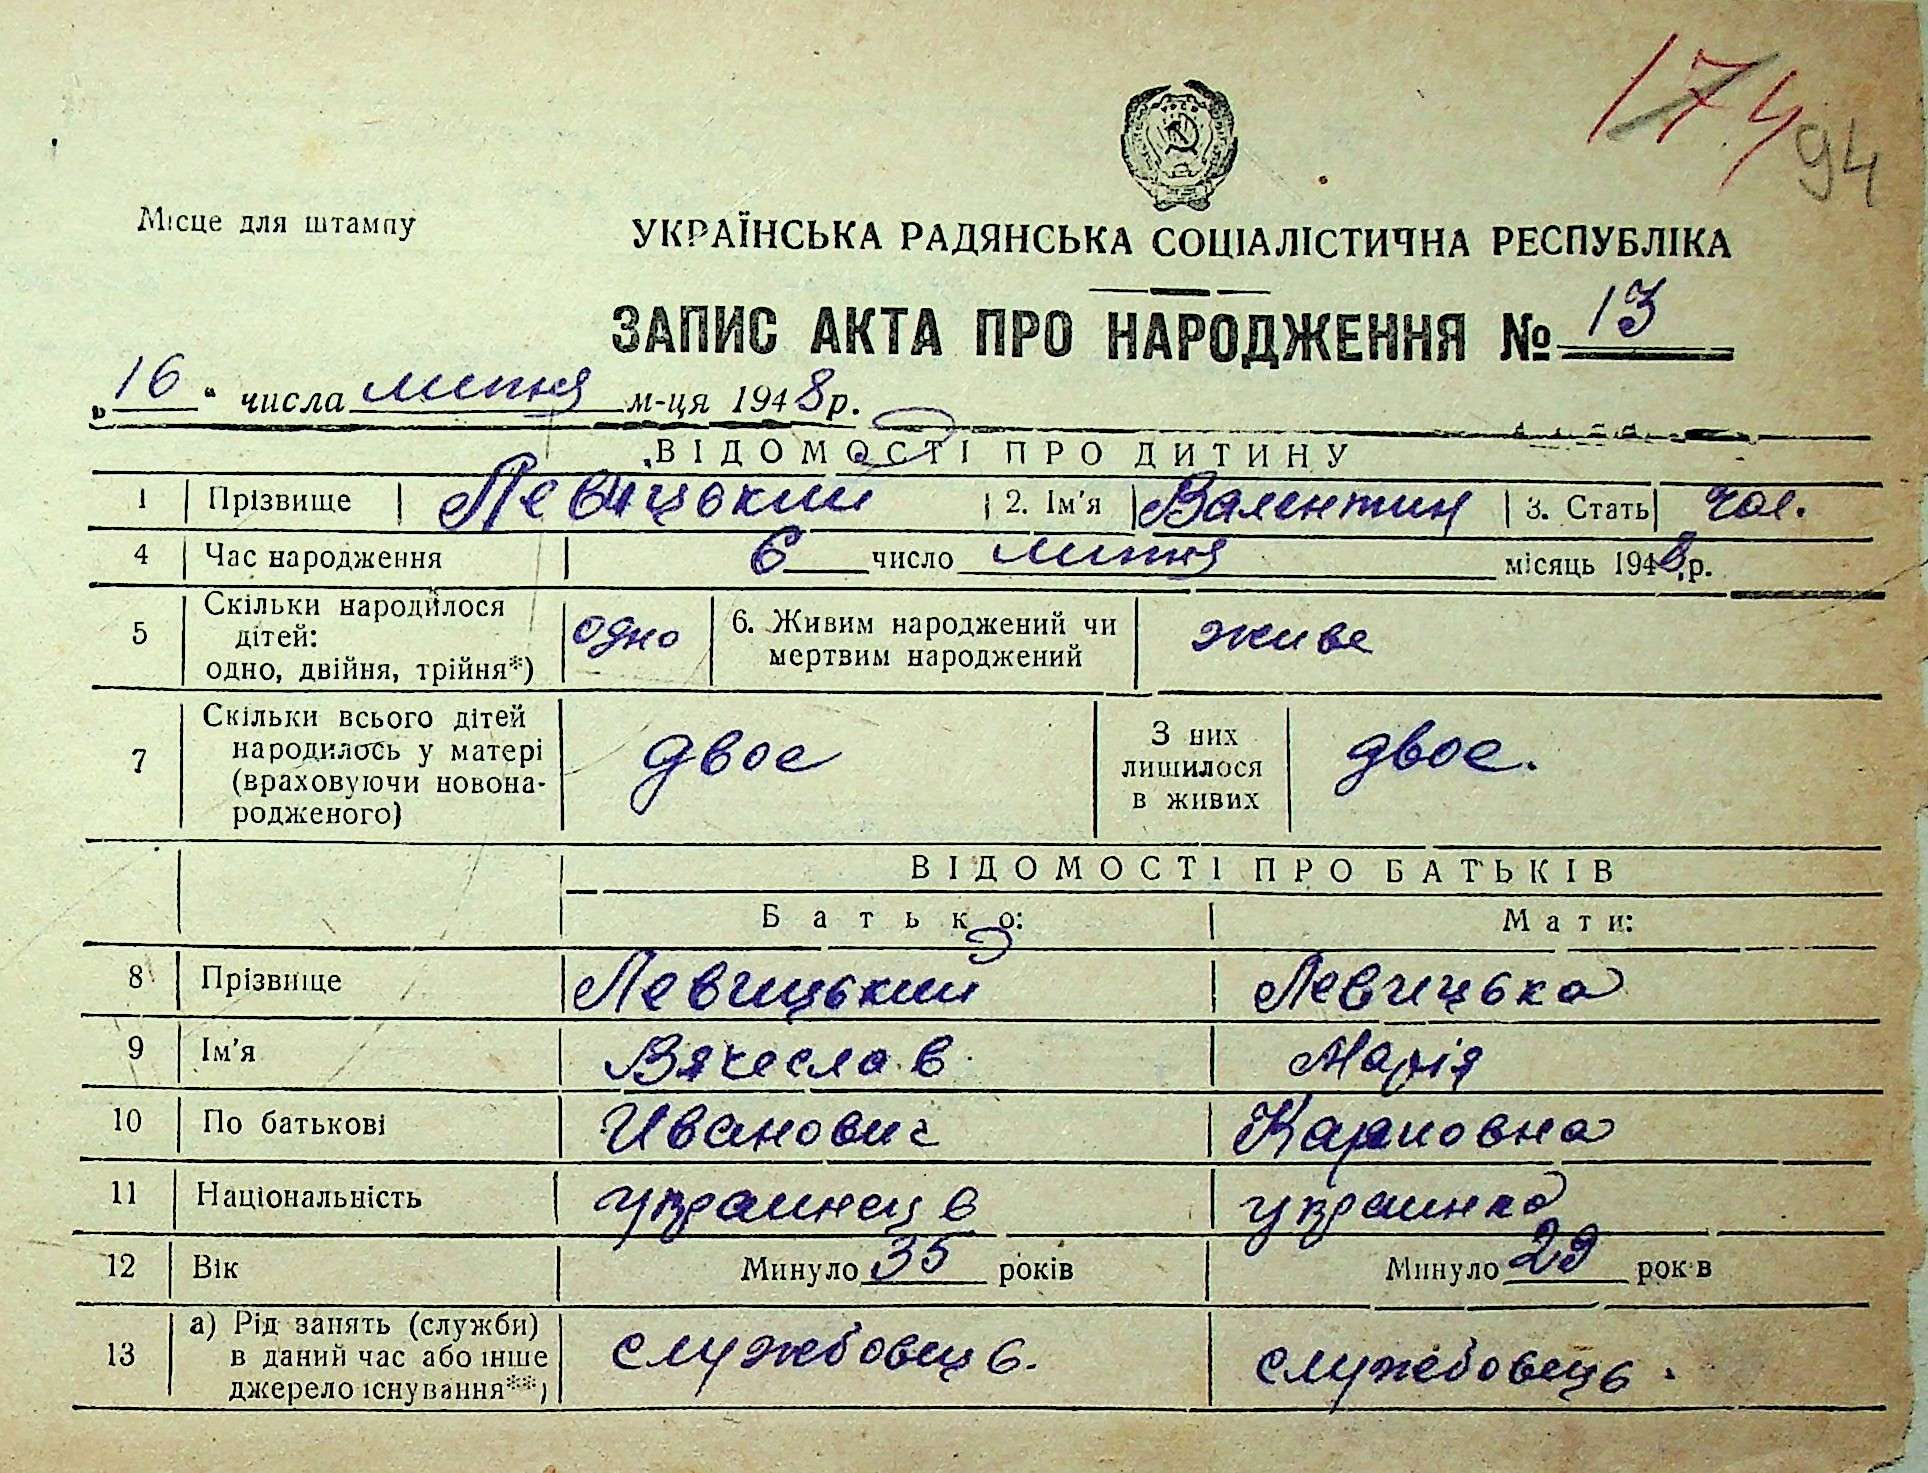 174
94
Місце для штампу
УКРАЇНСЬКА РАДЯНСЬКА СОЦІАЛІСТИЧНА РЕСПУБЛІКА
ЗАПИС АКТА ПРО НАРОДЖЕННЯ № 13
„16“ числа липня м-ця 1948 р.
ВІДОМОСТІ ПРО ДИТИНУ
1 Прізвище Левицький 2. Ім'я Валентин 3. Стать чол.
4 Час народження 6 число липня місяць 1948 р.
5 Скільки народилося дітей: одно, двійня, трійня*) одно 6. Живим народжений чи мертвим народжений живе
7 Скільки всього дітей народилось у матері (враховуючи новонародженого) двое З них лишилося в живих двое.
ВІДОМОСТІ ПРО БАТЬКІВ
Батько: Мати:
8 Прізвище Левицький Левицька
9 Ім'я Вячеслав Марія
10 По батькові Иванович Карповна
11 Національність украинець украинка
12 Вік Минуло 35 років Минуло 29 років
13 а) Рід занять (служби) в даний час або інше джерело існування**) службовець. службовець.